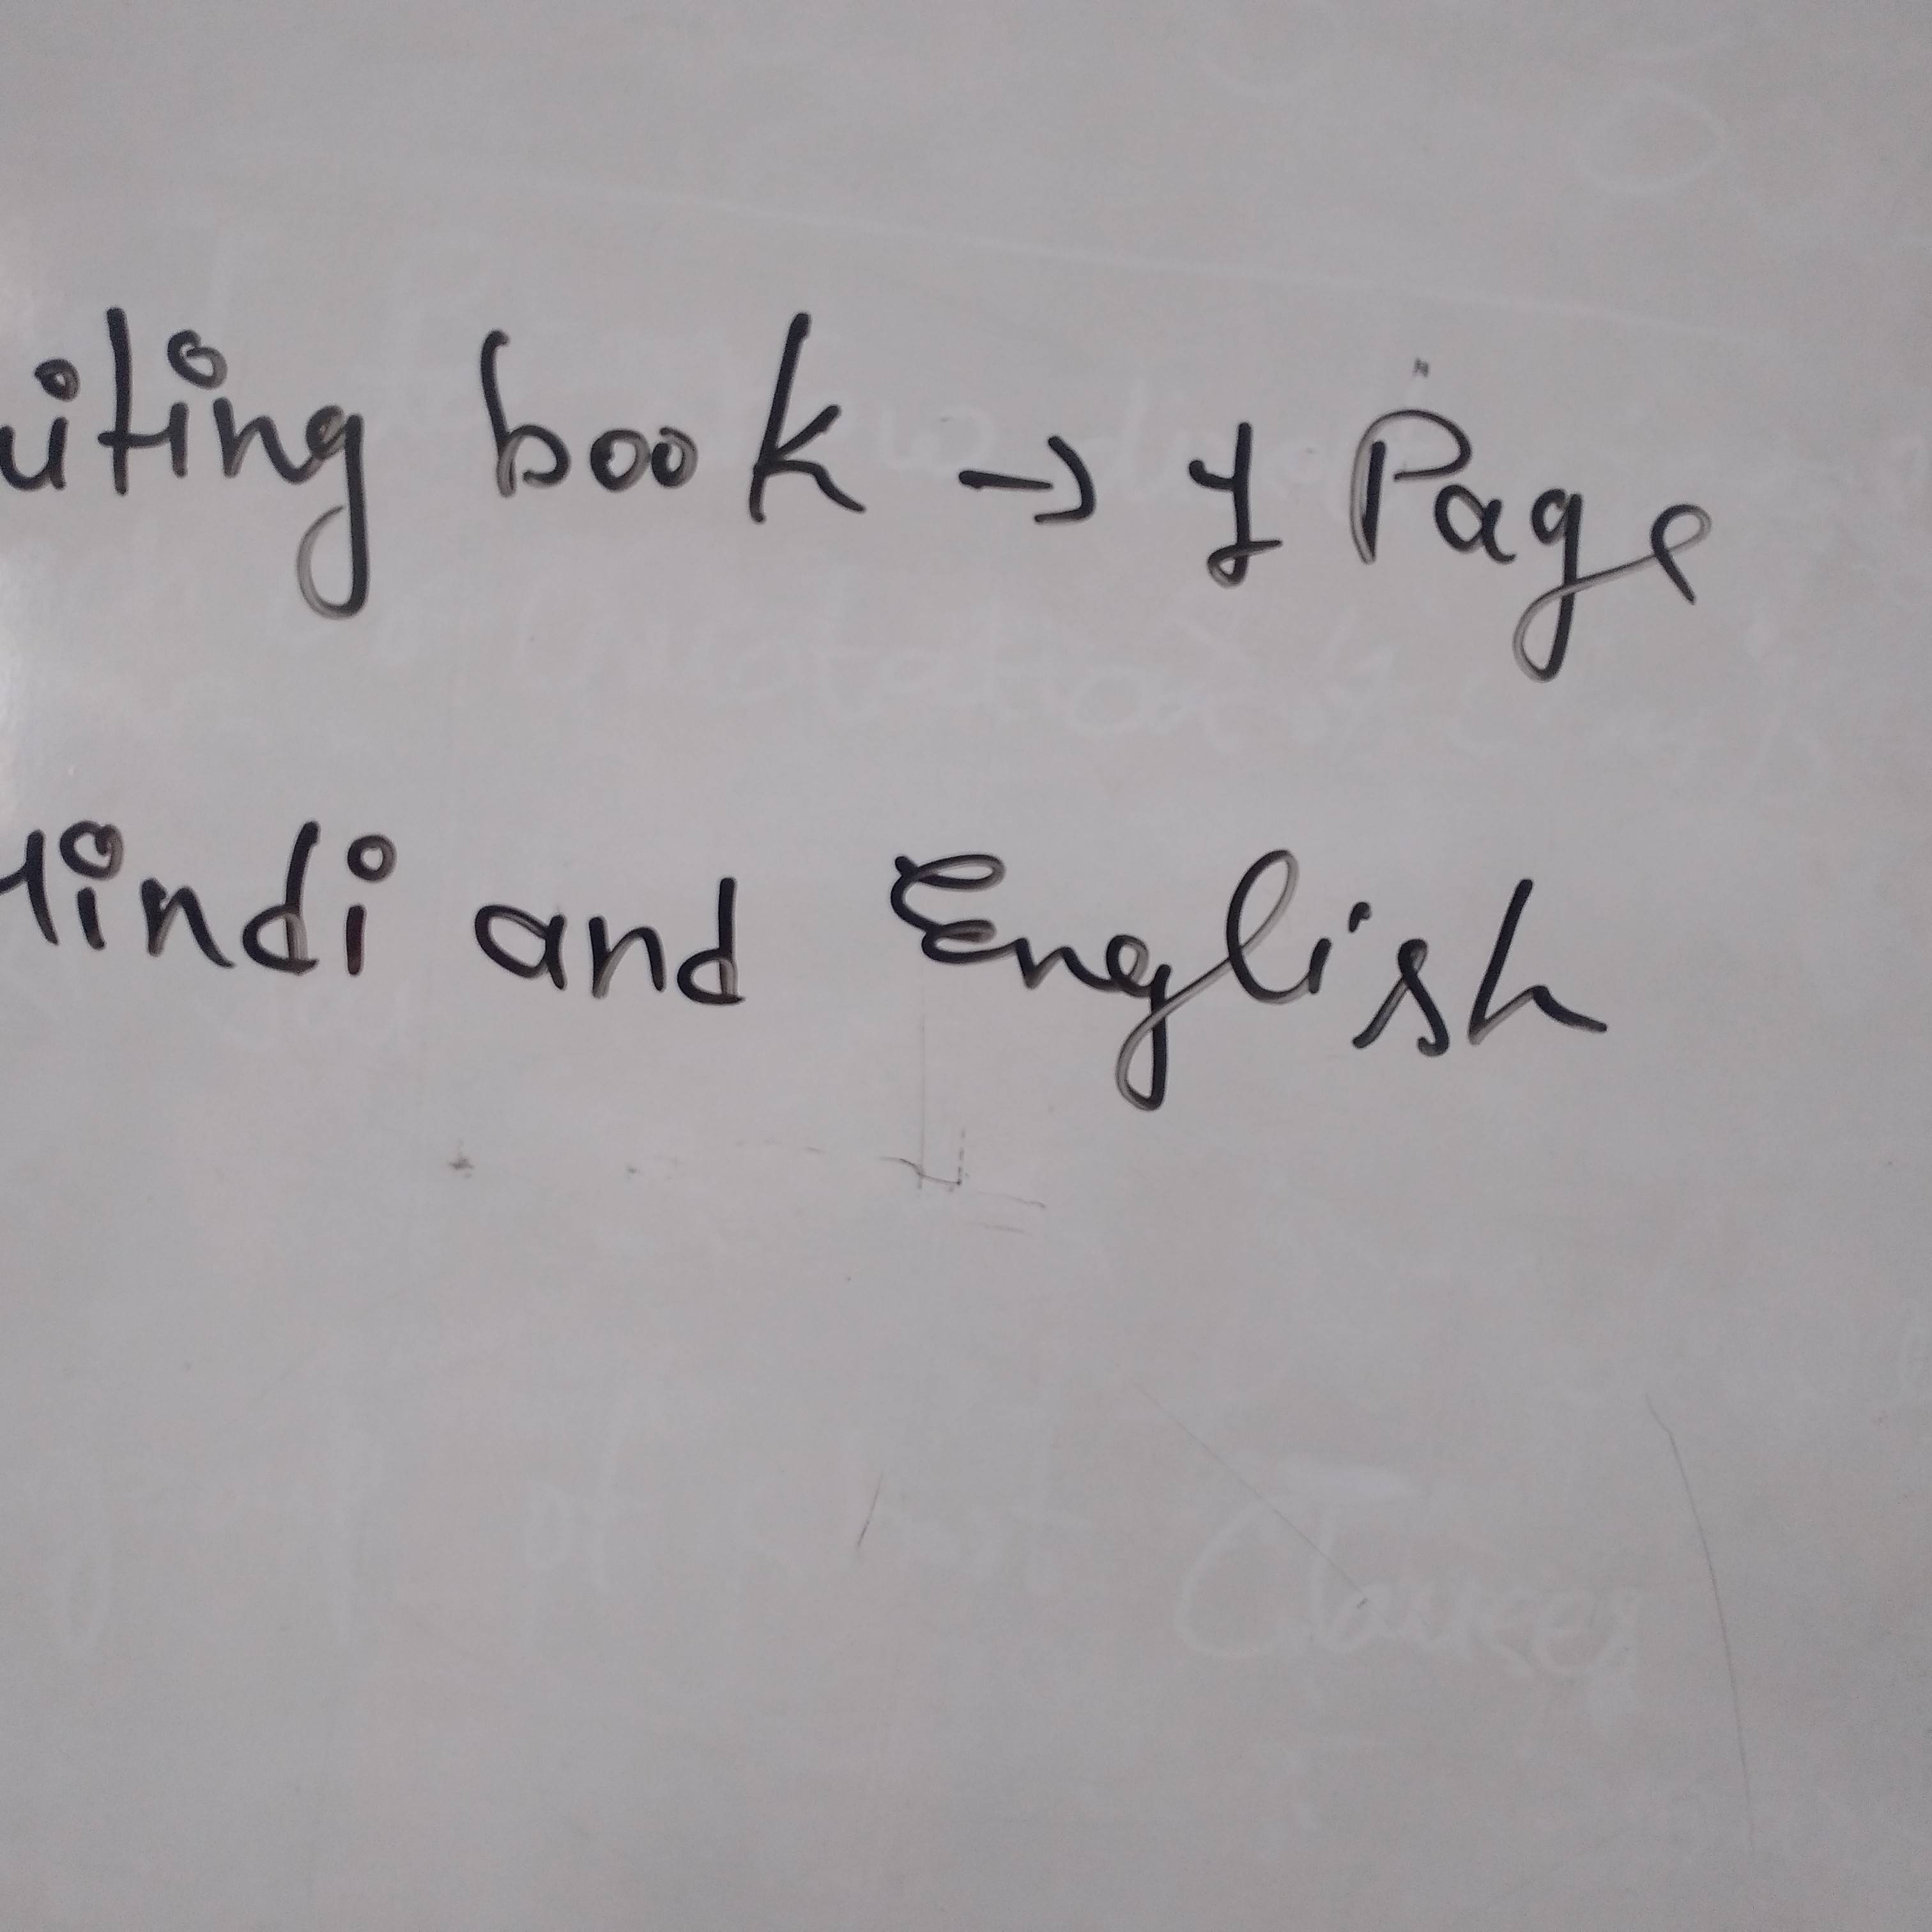 uiting book → 1 Page
Hindi and English